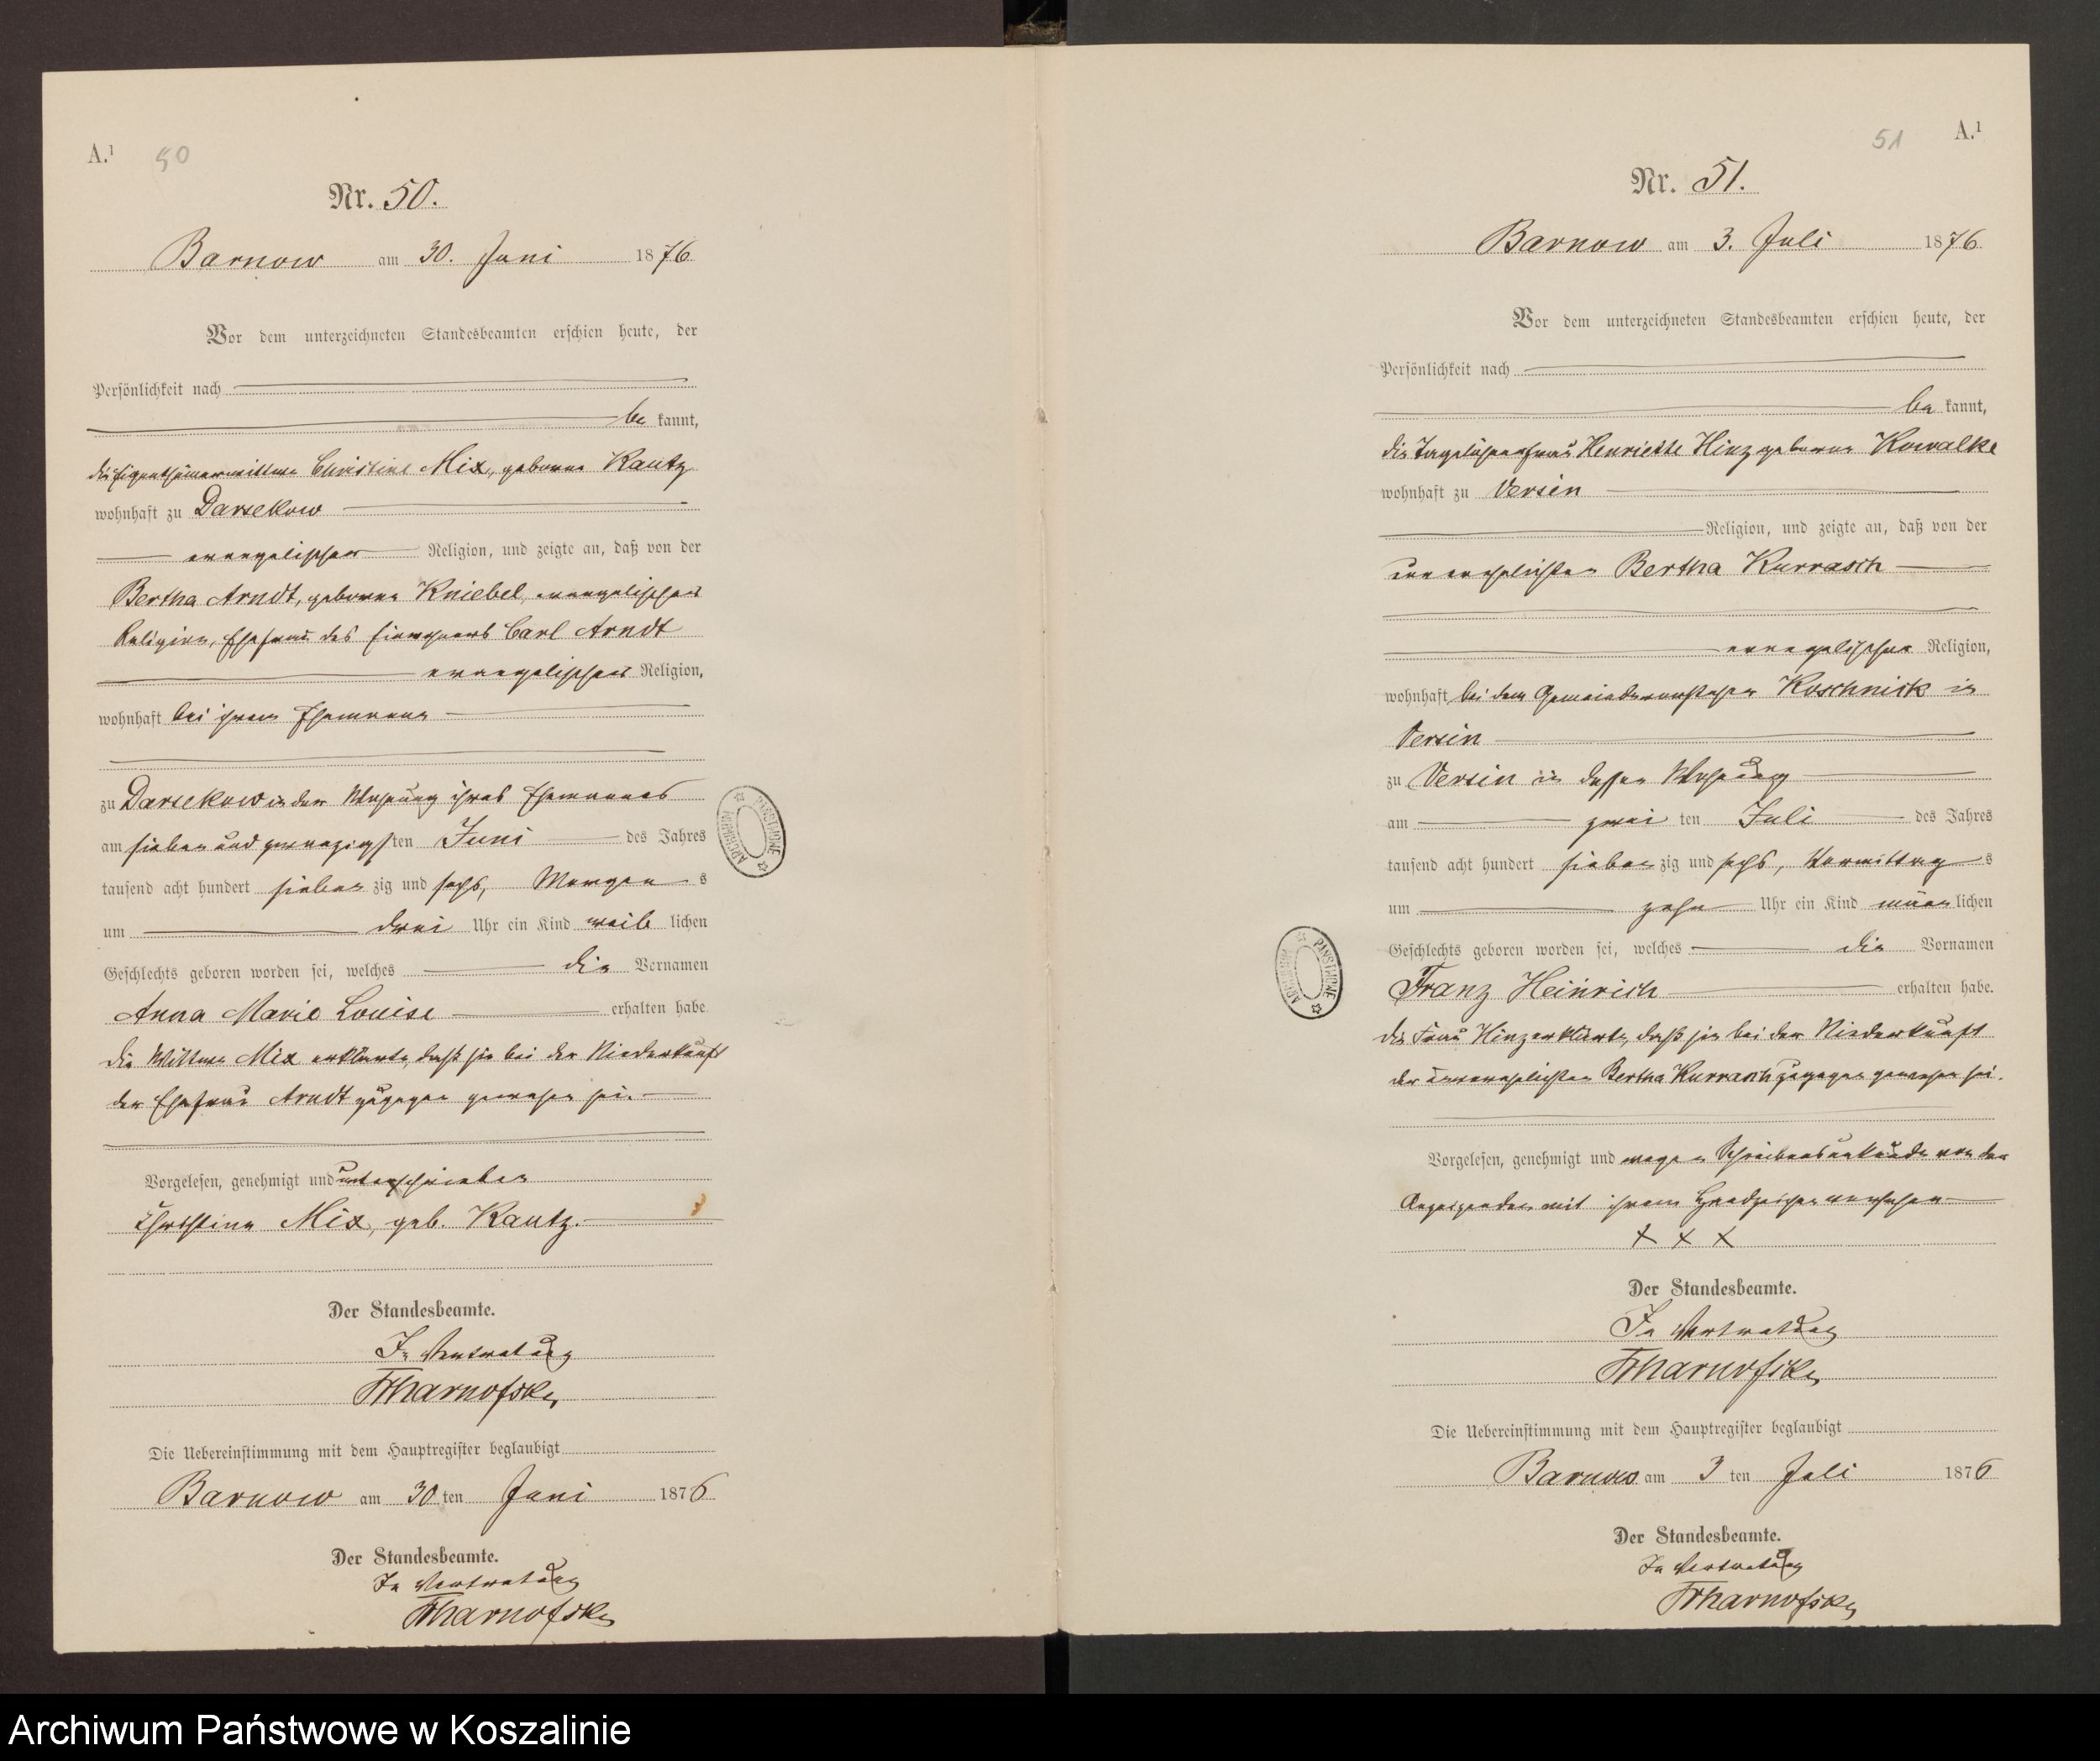 A.¹ 50
Nr. 50.
Barnow am 30. Juni 1876
Vor dem unterzeichneten Standesbeamten erschien heute, der
Persönlichkeit nach
be kannt,
die Eigenthümerwittwe Christine Mix, geborne Kautz
wohnhaft zu Darsekow
evangelischer Religion, und zeigte an, daß von der
Bertha Arndt, geborne Kniebel, evangelischer
Religion, Ehefrau des Einwohners Carl Arndt
evangelischer Religion,
wohnhaft bei ihrem Ehemanne
zu Darsekow in der Wohnung ihres Ehemannes
am sieben und zwanzigsten Juni des Jahres
tausend acht hundert sieben zig und sechs, Morgen s
um drei Uhr ein Kind weib lichen
Geschlechts geboren worden sei, welches die Vornamen
Anna Marie Louise erhalten habe
die Wittwe Mix erklärte, daß sie bei der Niederkunft
der Ehefrau Arndt zugegen gewesen sei.
Vorgelesen, genehmigt und unterschrieben
Christine Mix, geb. Kautz.
Der Standesbeamte.
In Vertretung
Tharnofsky
Die Uebereinstimmung mit dem Hauptregister beglaubigt
Barnow am 30 ten Juni 1876
Der Standesbeamte.
In Vertretung
Tharnofsky
51 A.¹
Nr. 51.
Barnow am 3. Juli 1876
Vor dem unterzeichneten Standesbeamten erschien heute, der
Persönlichkeit nach
be kannt,
die Tagelöhnerfrau Henriette Hinz geborne Kowalke
wohnhaft zu Versin
Religion, und zeigte an, daß von der
unverehelichten Bertha Kurrasch
evangelischer Religion,
wohnhaft bei dem Gemeindevorsteher Koschnick in
Versin
zu Versin in dessen Wohnung
am zwei ten Juli des Jahres
tausend acht hundert sieben zig und sechs, Vormittag s
um zehn Uhr ein Kind männ lichen
Geschlechts geboren worden sei, welches die Vornamen
Franz Heinrich erhalten habe.
die Frau Hinz erklärte, daß sie bei der Niederkunft
der unverehelichten Bertha Kurrasch zugegen gewesen sei.
Vorgelesen, genehmigt und wegen Schreibensunkunde von der
Anzeigenden mit ihrem Handzeichen versehen
X X X
Der Standesbeamte.
In Vertretung
Tharnofsky
Die Uebereinstimmung mit dem Hauptregister beglaubigt
Barnow am 3 ten Juli 1876
Der Standesbeamte.
In Vertretung
Tharnofsky
Archiwum Państwowe w Koszalinie